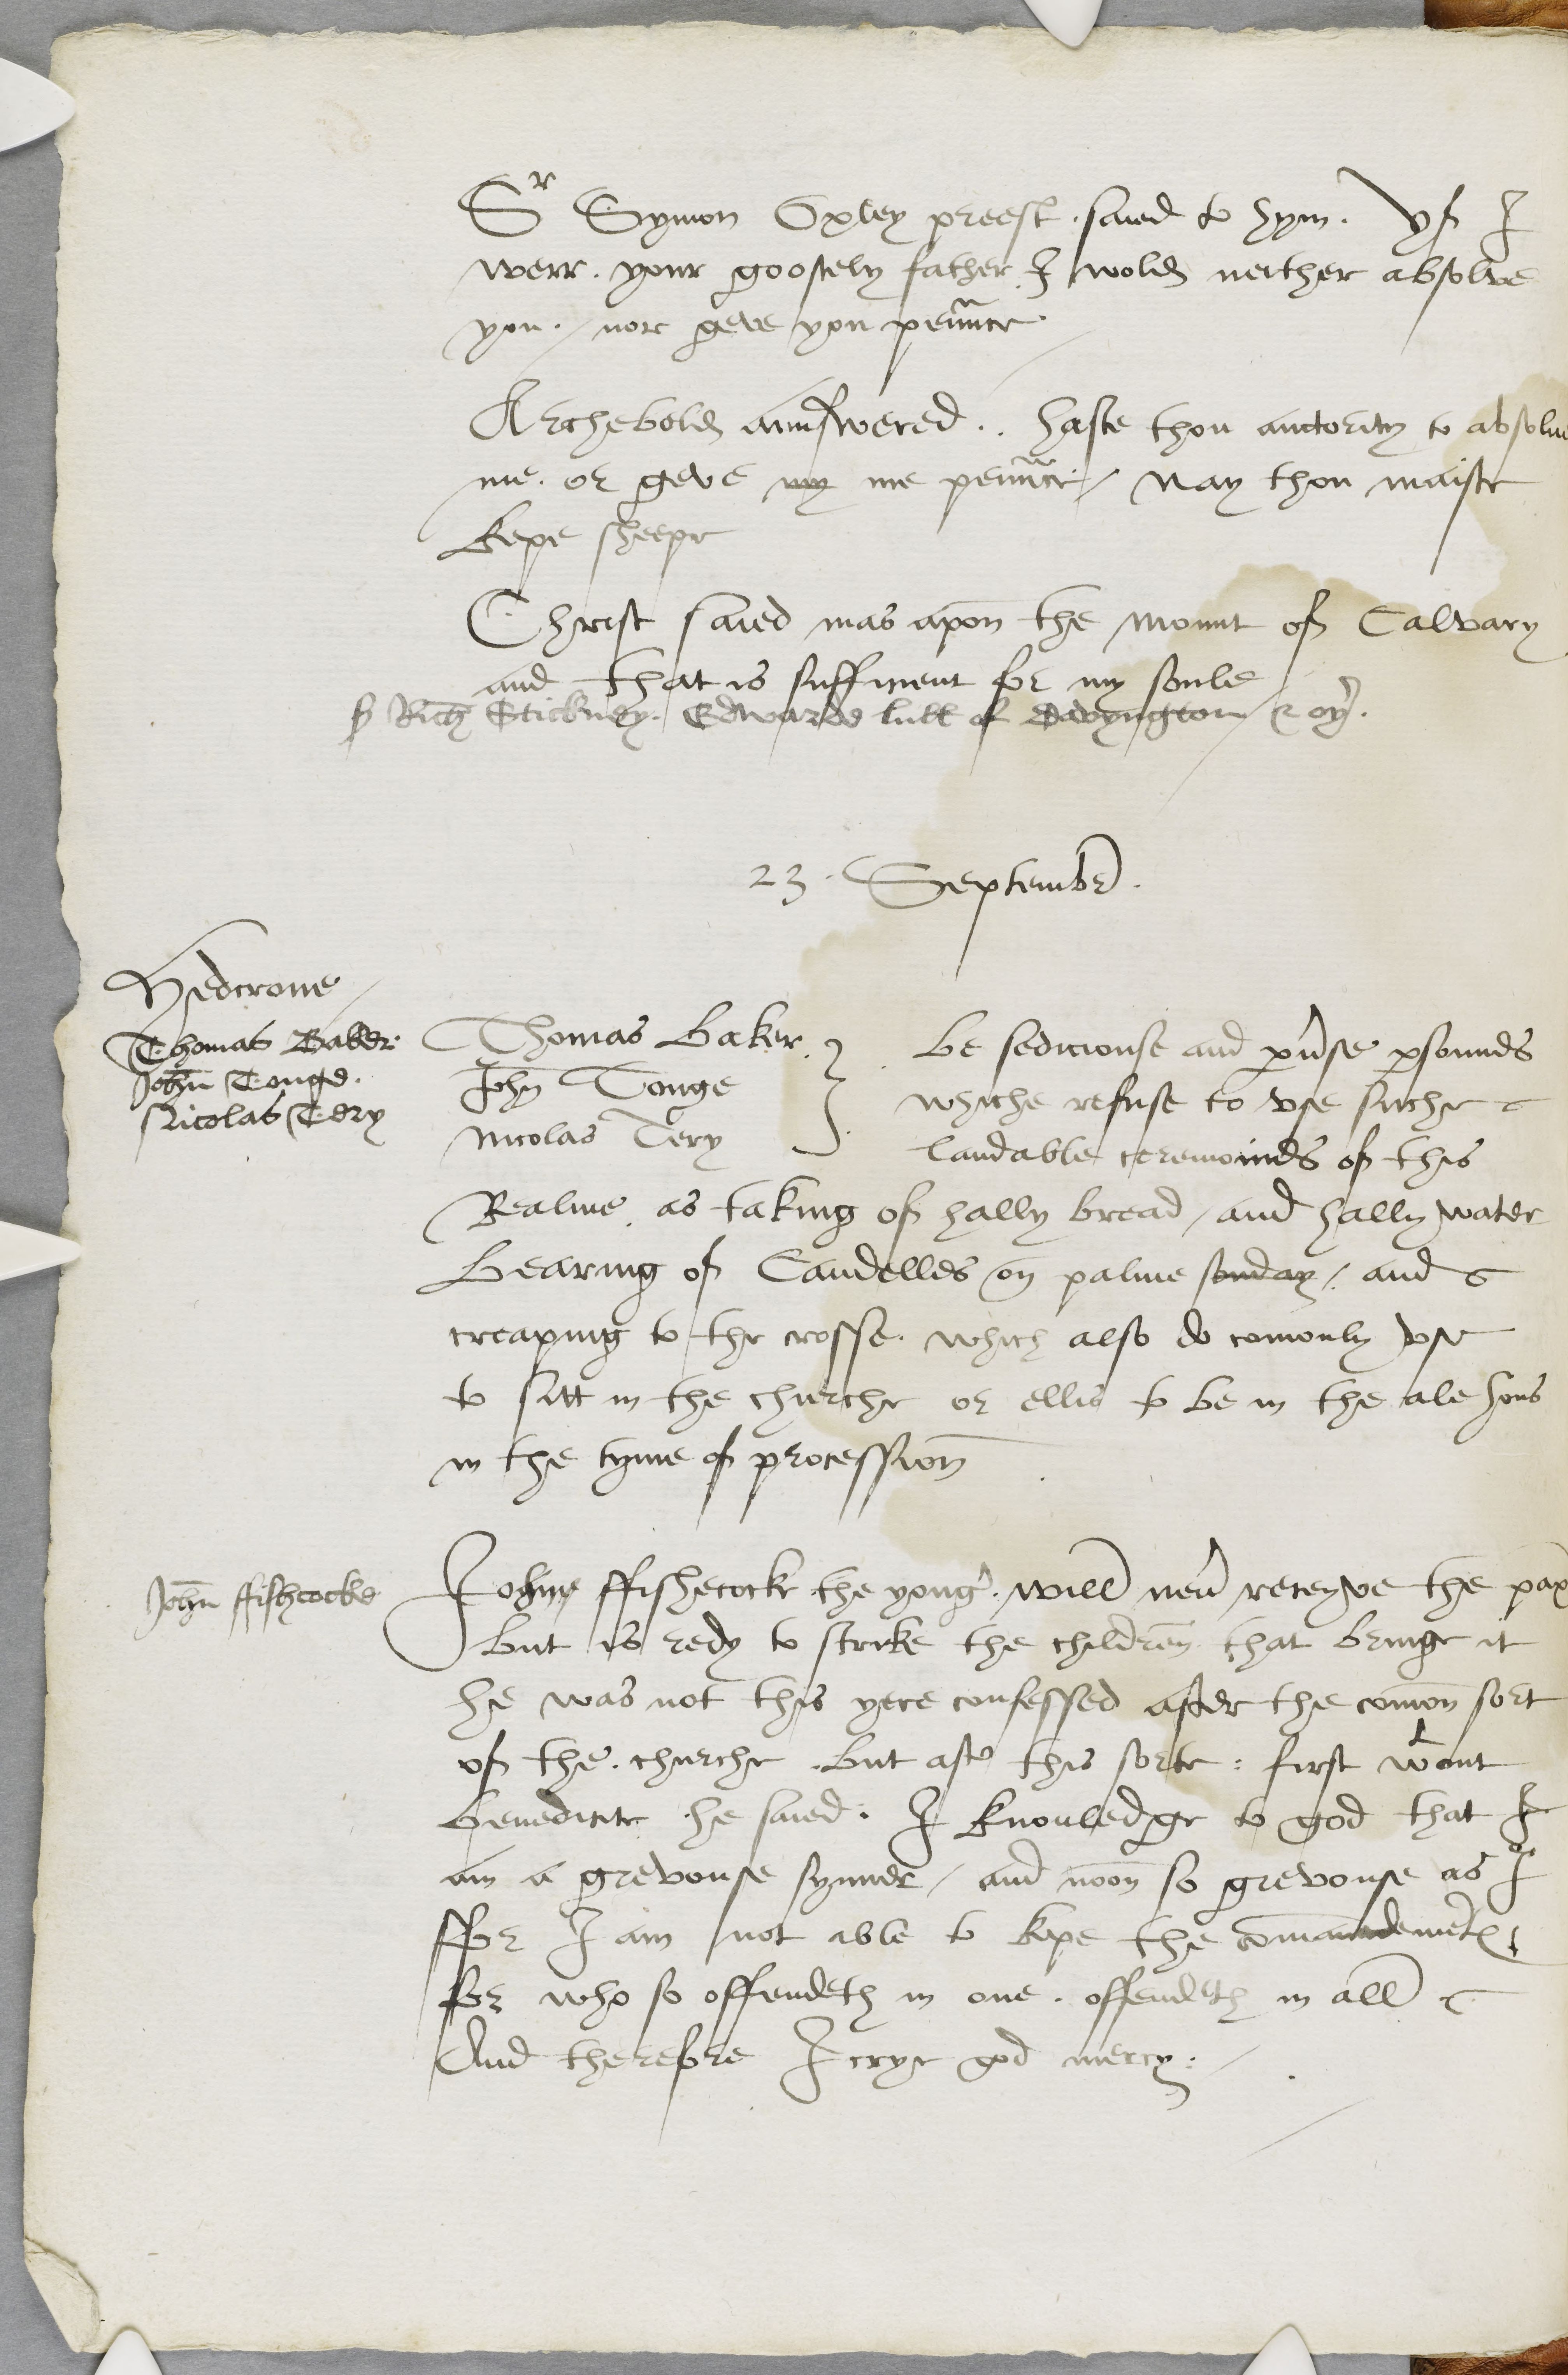 Sr Symon Oxley preest saied to hym. yf I
werr. your goostely father I wold neither absolve
you. / nor geve you penance
Archebold aunswered.. haste thou auctority to absolue
me. or geve my me penance / Nay thou maiste
kepe sheepe
Christ saied mas apon the mount of Calvary
and that is sufficient for my soule
p Rich Stickney. Edwarde lull of Davyngton & oy.
23. Septembr.
Hedcrone
Thomas Baker.
John Tonge.
Nicolas Tery
Thomas Baker
John Tonge
Nicolas Tery
be sediciouse and pruse psonnds
whiche refuse to vse suche
laudable ceremonids of this
Realme. as taking of hally bread / and hally water
bearing of Candelles on palme sonday /. and
creaping to the crosse. which also do comonly vse
to sitt in the churche or ellis to be in the ale hous
in the tyme of procession
John ffishcocke
Johne ffishecocke the yong. will neu receyve the pax
but is redy to strike the children that bringe it
he was not this yere confessed after the comon sort
of the. churche. but aft this sorte: first wtout
benedicite he saied. I knouledge to god that I
am a grevouse synner / and noon so grevouse as I
ffor I am not able to kepe the comandemets
for who so offendeth in one. offendeth in all
And therefore I crye god mercy. /